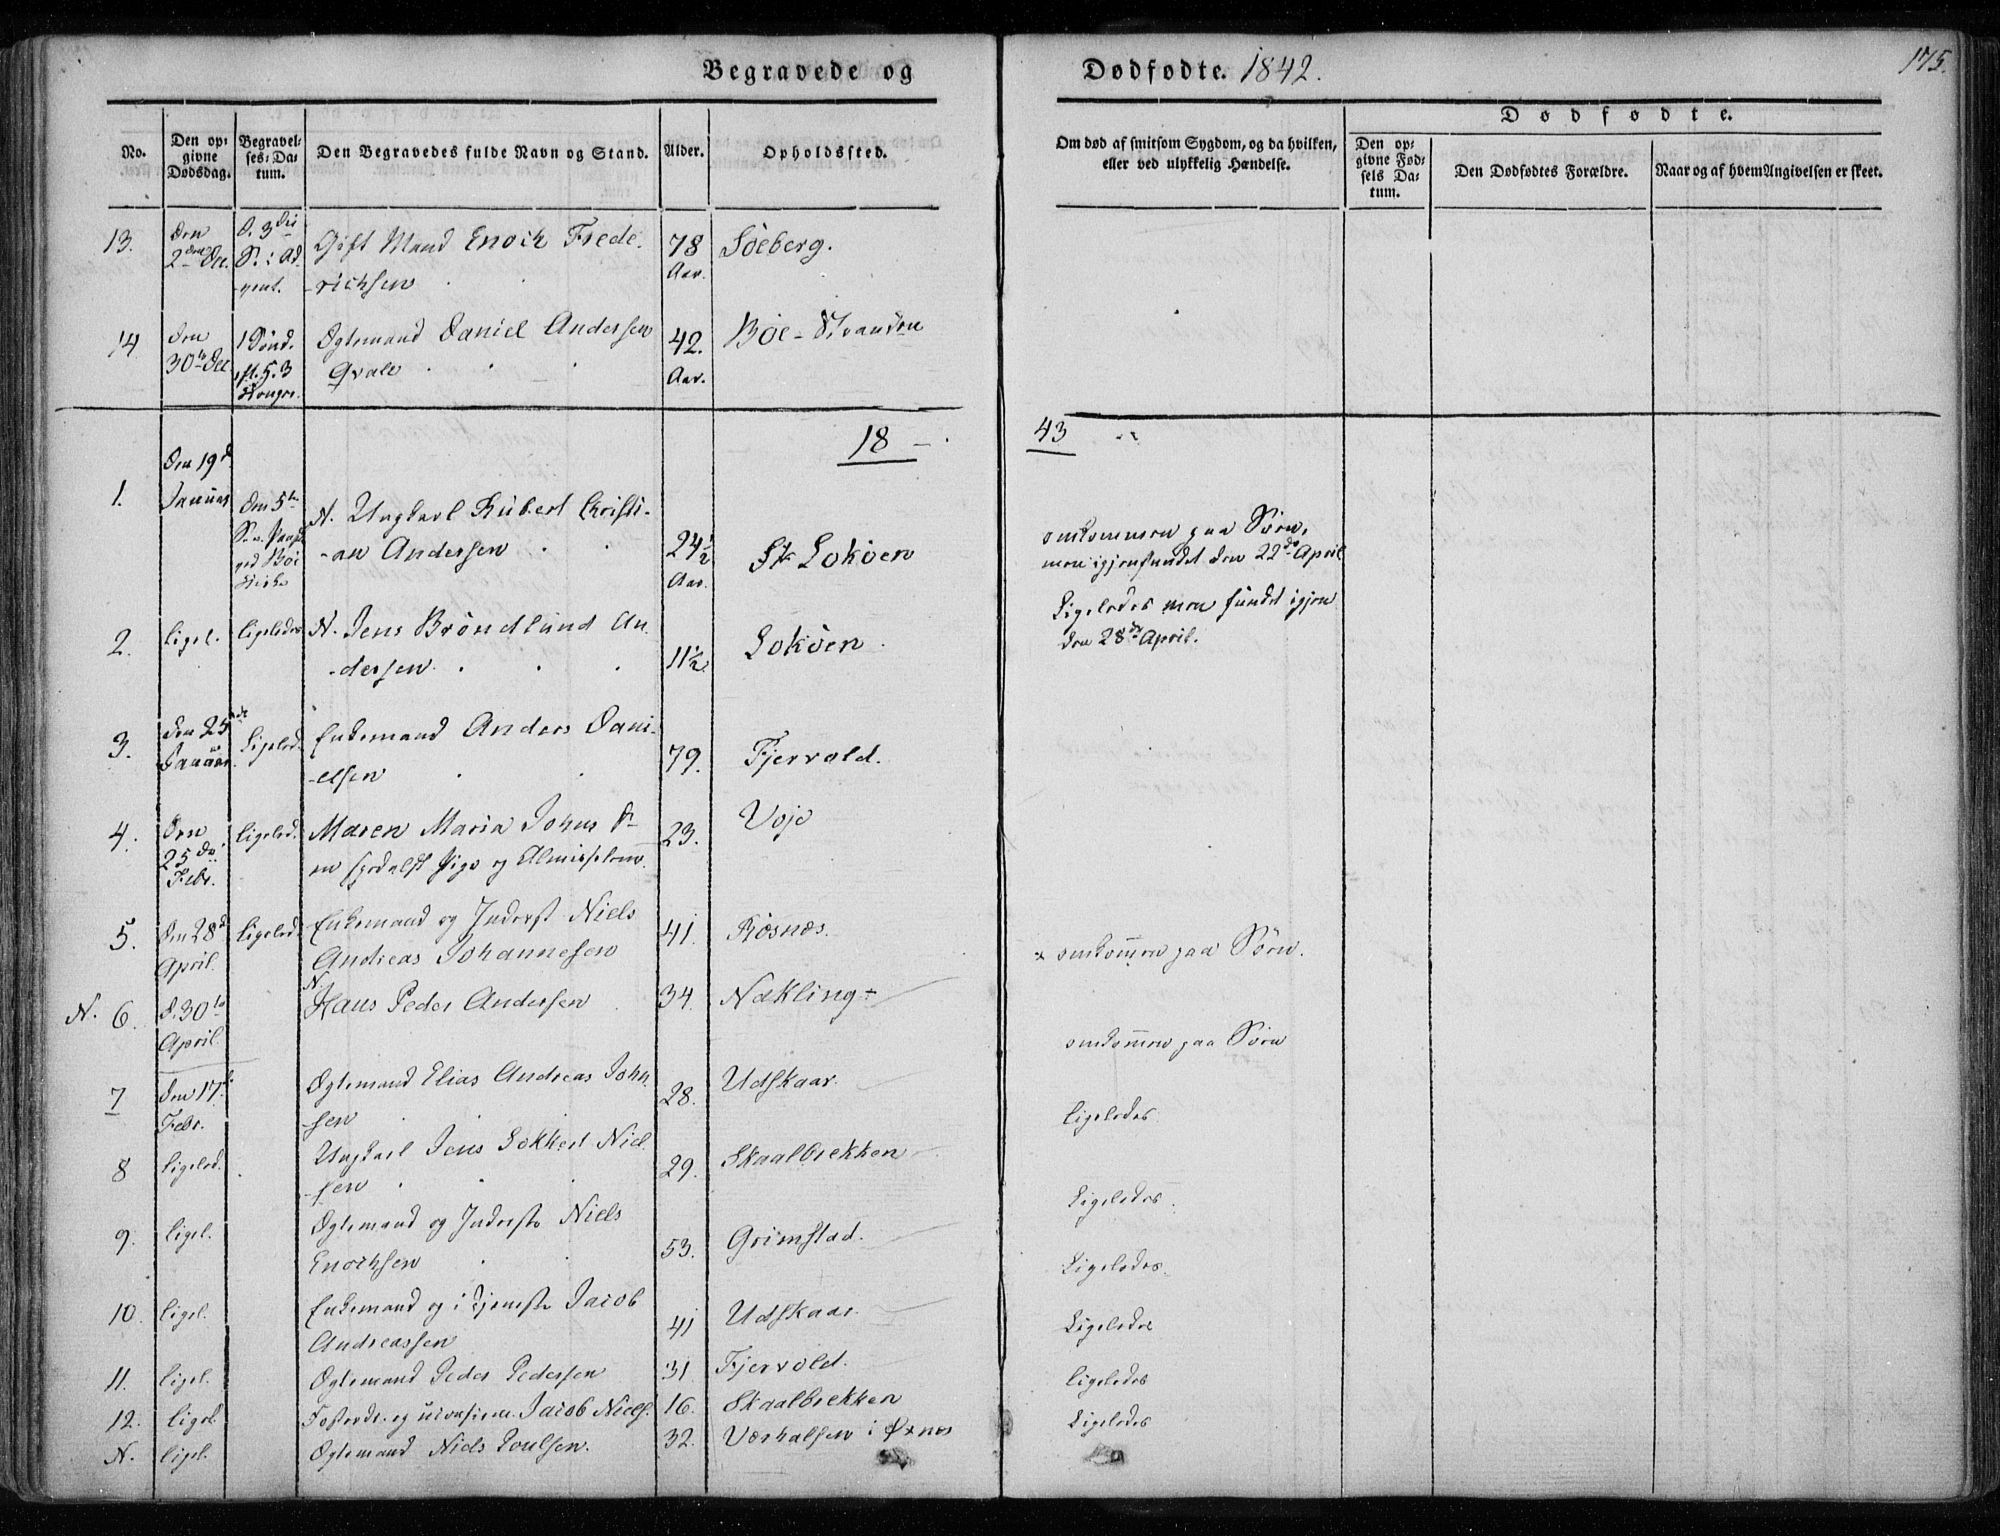 Begravede og
Dødfødte. 1842.
175.
No.
Den opgivne Dødsdag.
Begravelses-Datum.
Den Begravedes fulde Navn og Stand.
Alder.
Opholdssted.
Om død af smitsom Sygdom, og da hvilken, eller ved ulykkelig Hændelse.
Dødfødte.
Den opgivne Fødsels Datum.
Den Dødfødtes Forældre.
Naar og af hvem Angivelsen er skeet.
13. Den 2den Dec. D. 3die S. i Advent. Gift Mand Enoch Frede- 78 Aar. Söeberg.
-richsen
14 Den 30te Dec 1 Sönd. eft. H. 3 Konger. Ægtemand Daniel Andersen 42. Aar. Böe-Stranden
Qvale
18 - 43
1. Den 19de Januar Den 5te S. e. Paaske ved Böe Kirke N. Ungkarl Hubert Christi- 24½ Aar. St. Loköen omkommen paa Söen,
-an Andersen men igjenfundet den 22de April
2. Ligel. Ligeledes N. Jens Bröndlund An- 11½ Loköen Ligeledes men fundet igjen
-dersen den 28de April.
3. Den 25de Januar Ligeled. Enkemand Anders Dani- 79. Fjervold.
-elsen
4. Den 25de Febr. Ligeled. Maren Maria Johns D- 23. Voje
en spedalsk Pige og Almisselem
5. Den 28de April. Ligeled. Enkemand og Inderst Niels 41. Rösnæs. omkommen paa Söen.
Andreas Johannesen
N. 6. D. 30te April. N. Hans Peder Andersen 34. Nækling omkommen paa Söen
7 Den 17de Febr. Ægtemand Elias Andreas John- 28. Udskaar. Ligeledes
sen
8 Ligeled. Ungkarl Jens Lokkert Niel- 29. Skaalbrekken Ligeledes.
-sen
9. Ligel. Ægtemand og Inderste Niels 53. Grimstad. Ligeledes.
Enochsen
10. Ligel. Enkemand og i Tjeneste Jacob 41 Udskaar Ligeledes
Andreassen
11. Ligel. Ægtemand Peder Pedersen 31 Fjervold. Ligeledes
12. Ligel. Jacob Niels. 16. Skaalbrekken Ligeledes
N. Ligel. Ægtemand Niels Poulsen. 32. Værhalsen i Öxnes